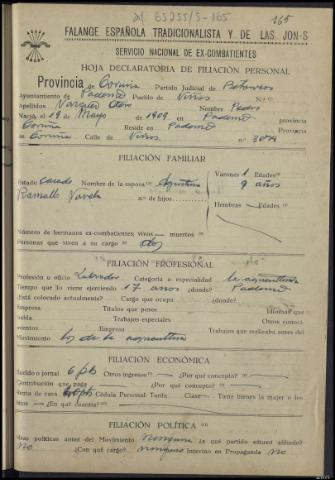 165
FALANGE ESPAÑOLA TRADICIONALISTA Y DE LAS JON-S
SERVICIO NACIONAL DE EX-COMBATIENTES
HOJA DECLARATORIA DE FILIACIÓN PERSONAL
Provincia de Coruña Partido Judicial de Betanzos
Ayuntamiento de Paderne Pueblo de Viñas
Apellidos Otero Nombre Pedro
Nació el 19 de Mayo de 1909 en Paderne provincia
Coruña Reside en Paderne provincia
Coruña Calle de Viñas n.º
FILIACIÓN FAMILIAR
Estado Casado Nombre de la esposa Agustina Varones 1 Edades
9 años
Ramallo Varela n.º de hijos
Hembras — Edades
Número de hermanos ex-combatientes: vivos — muertos
Personas que viven a su cargo dos
FILIACIÓN PROFESIONAL
Profesión u oficio Labrador Categoría o especialidad la agricultura
Tiempo que lo viene ejerciendo 17 años ¿donde? Paderne
Está colocado actualmente? — Cargo que ocupa ¿donde?
Empresa Títulos que posee Idiomas que
habla Trabajos especiales Otros conoci-
mientos Empresa Trabajos que realizaba antes del
Movimiento los de la agricultura
FILIACIÓN ECONÓMICA
Sueldo o jornal 6 pts Otros ingresos — ¿Por qué concepto? —
Contribución que paga ¿Por qué concepto? —
Renta de casa Cédula Personal Tarifa Clase — Tiene bienes la mujer o los
— ¿En qué cuantía? —
FILIACIÓN POLÍTICA
Ideas políticas antes del Movimiento ninguna ¿a qué partido estuvo afiliado?
No ¿Con qué cargo? ninguno Intervino en Propaganda No
No